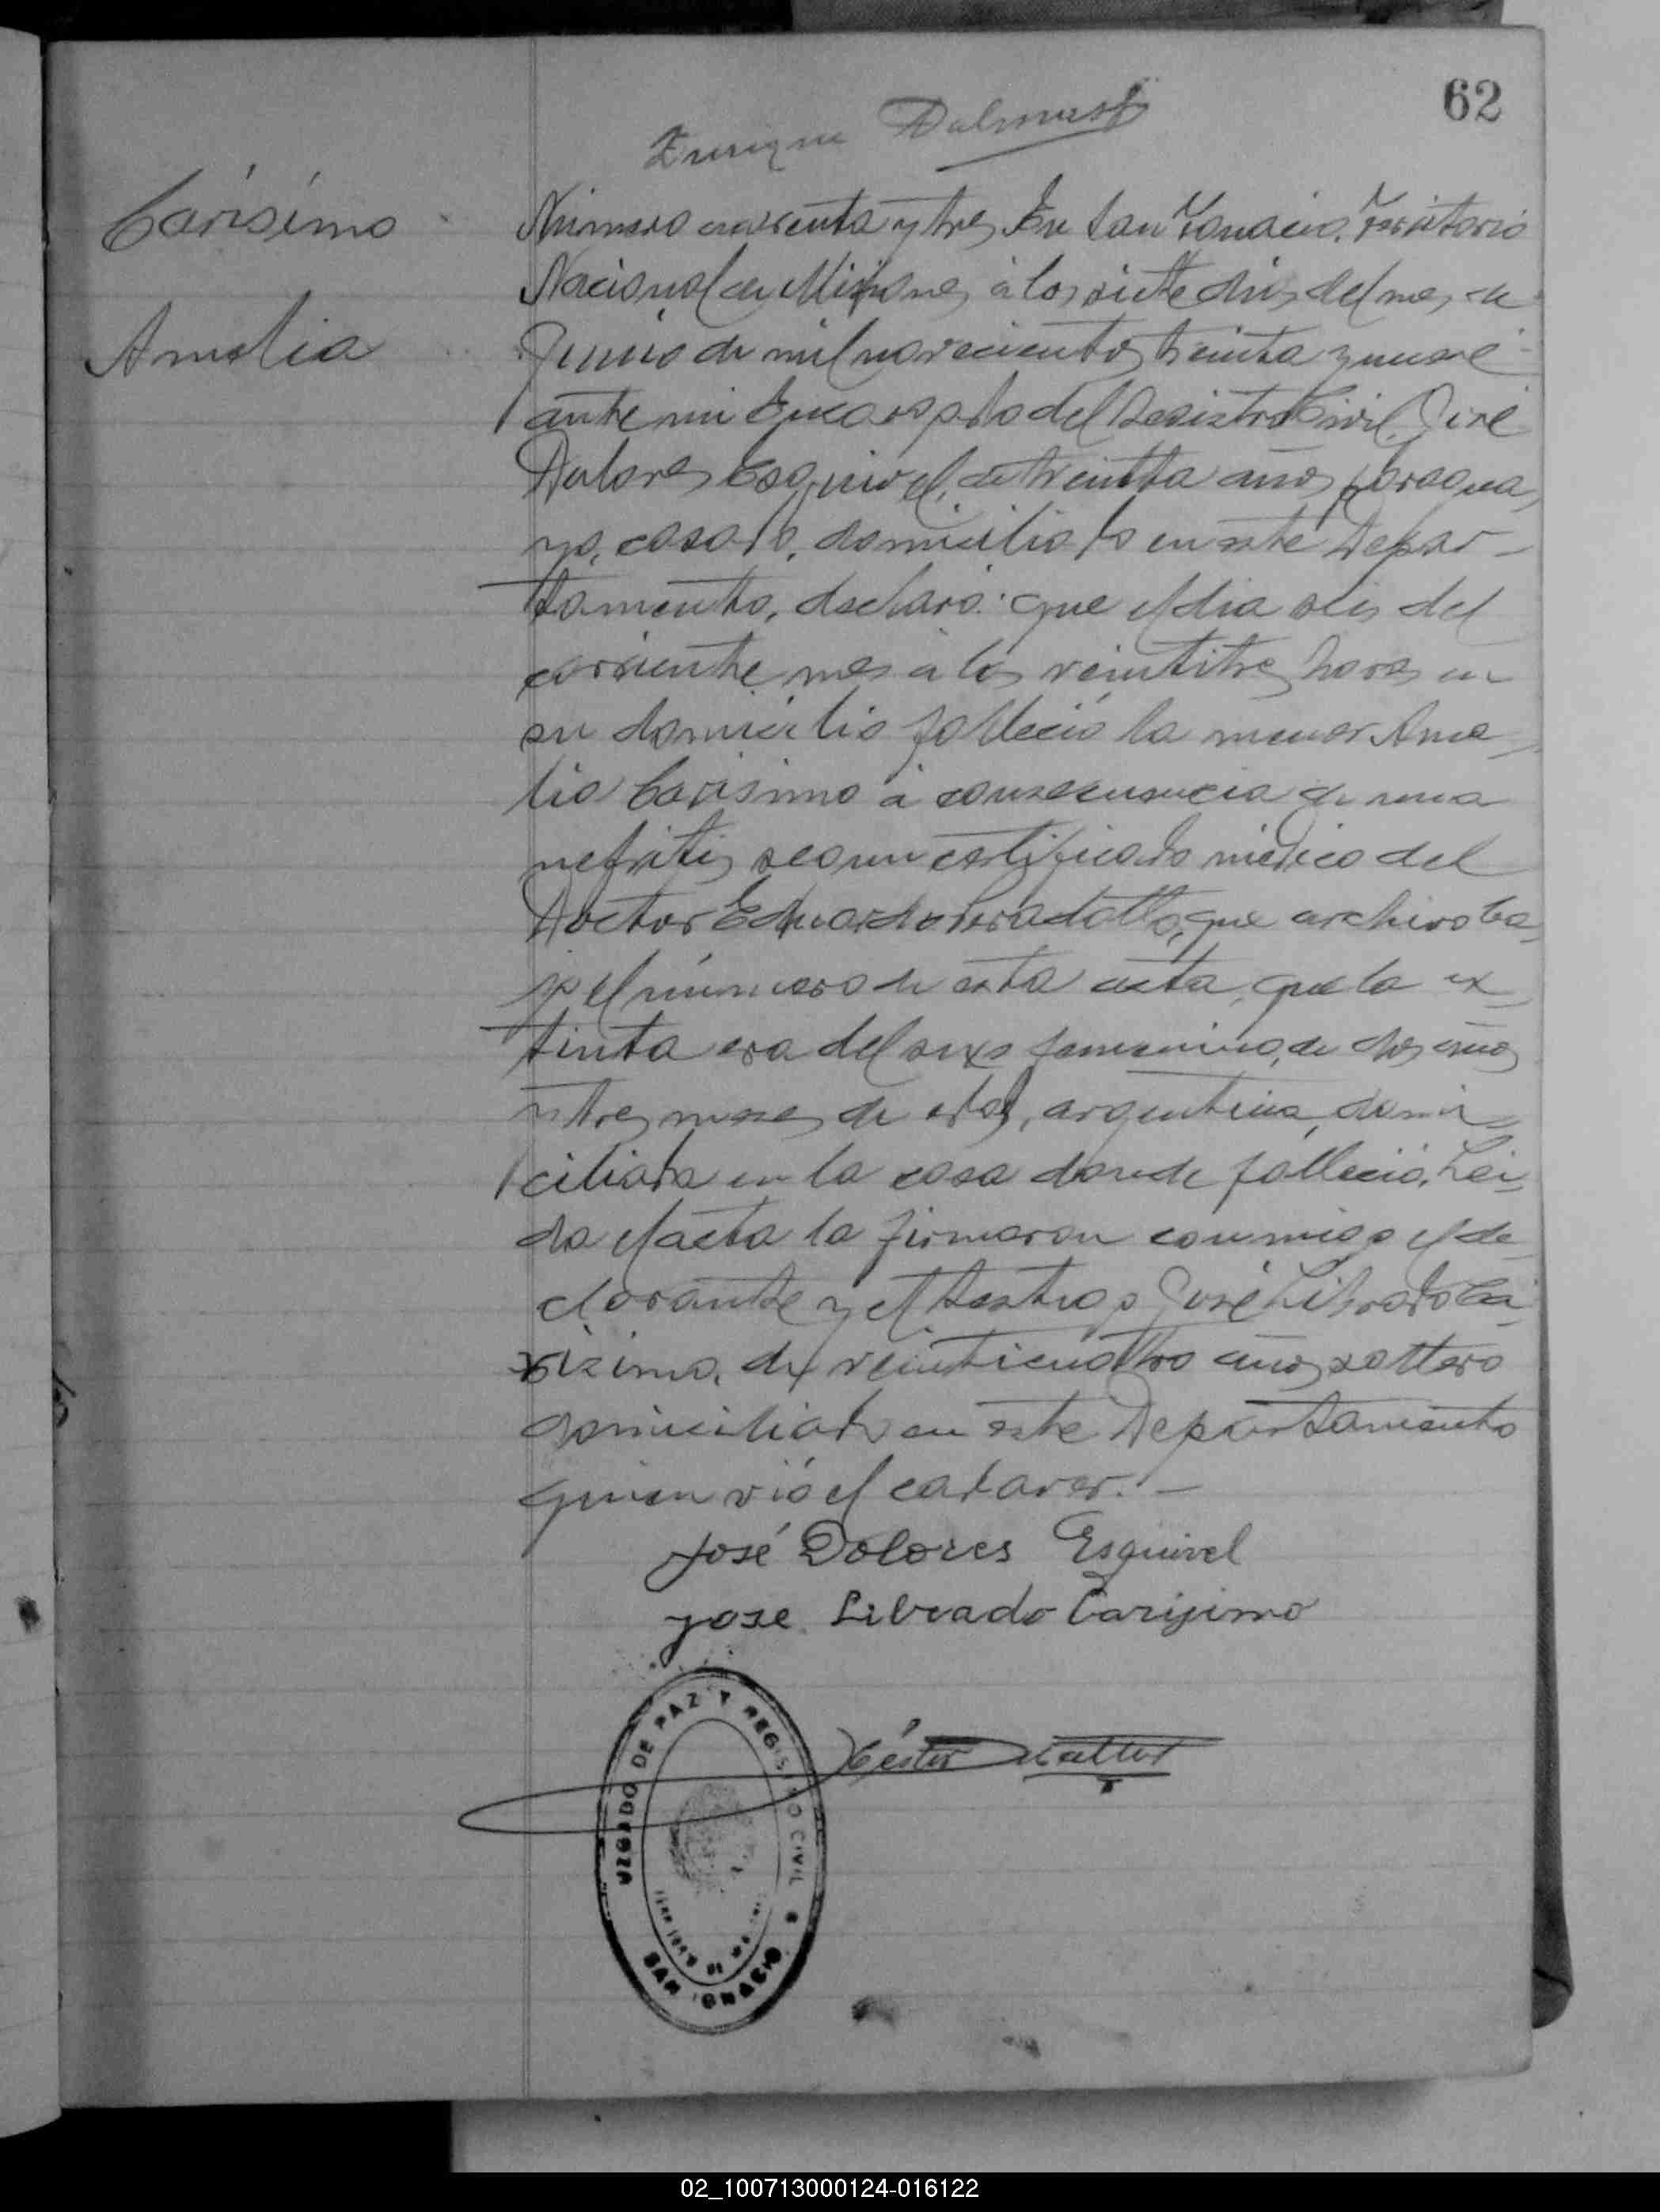 62
Enrique Dalmast
Carísimo
Amelia
Número cuarenta y tres En San Ignacio, Territorio
Nacional de Misiones a los siete dias del mes de
Junio de mil novecientos treinta y nueve
ante mi Encargado del Registro Civil, José
Dolores Esquivel, de treinta años, paragua
yo, casado, domiciliado en este Depar-
tamento, declaró: que el dia seis del
corriente mes a las veintitres horas en
su domicilio falleció la menor Ame
lia Carisimo a consecuencia de una
nefritis segun certificado médico del
Doctor Eduardo que archivo ba
jo el número de esta acta, que la ex
tinta era del sexo femenino, de dos años
y tres meses de edad, argentina, domi
ciliada en la casa donde falleció. Lei
da el acta la firmaron conmigo el de
clarante y el testigo José Librado Ca
risimo, de veinticuatro años, soltero
domiciliado en este Departamento
quien vió el cadaver.-
José Dolores Esquivel
Jose Librado Carisimo
Héstor
JUZGADO DE PAZ Y REGISTRO CIVIL
SAN IGNACIO
02_100713000124-016122